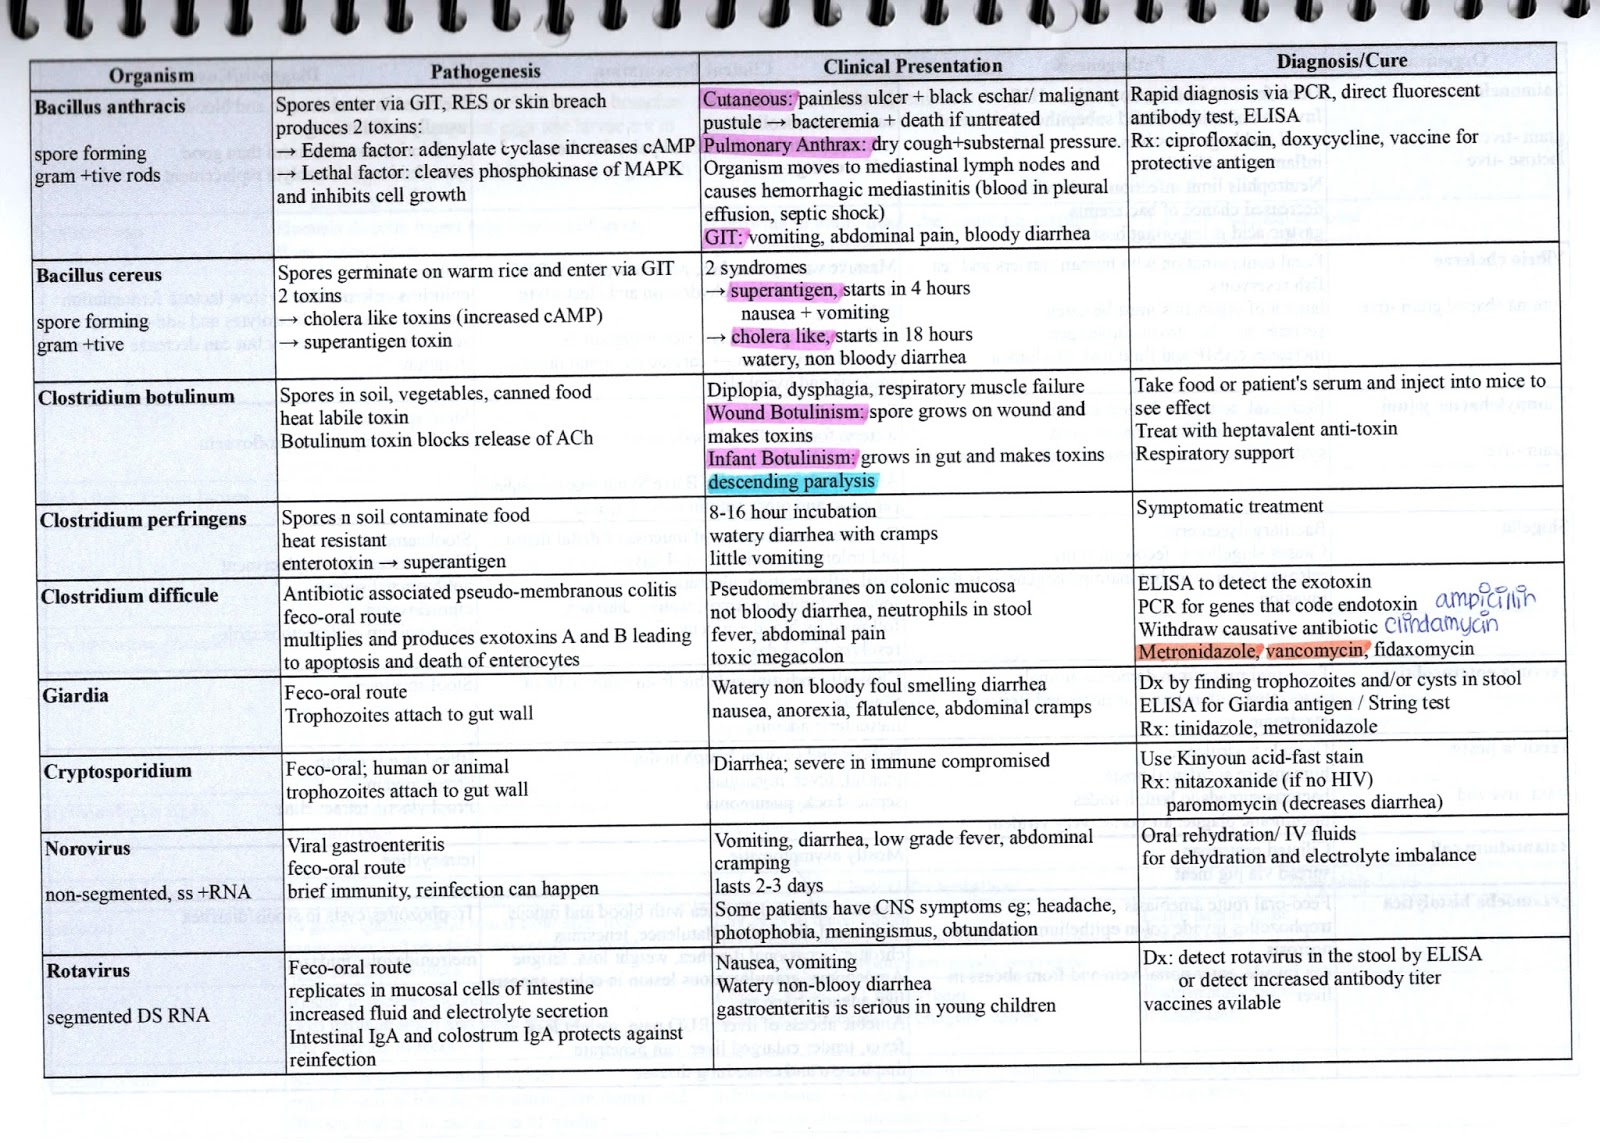 Organism Pathogenesis Clinical Presentation Diagnosis/Cure
Bacillus anthracis
spore forming
gram +tive rods
Spores enter via GIT, RES or skin breach
produces 2 toxins:
→ Edema factor: adenylate cyclase increases cAMP
→ Lethal factor: cleaves phosphokinase of MAPK
and inhibits cell growth
Cutaneous: painless ulcer + black eschar/ malignant
pustule → bacteremia + death if untreated
Pulmonary Anthrax: dry cough+substernal pressure.
Organism moves to mediastinal lymph nodes and
causes hemorrhagic mediastinitis (blood in pleural
effusion, septic shock)
GIT: vomiting, abdominal pain, bloody diarrhea
Rapid diagnosis via PCR, direct fluorescent
antibody test, ELISA
Rx: ciprofloxacin, doxycycline, vaccine for
protective antigen
Bacillus cereus
spore forming
gram +tive
Spores germinate on warm rice and enter via GIT
2 toxins
→ cholera like toxins (increased cAMP)
→ superantigen toxin
2 syndromes
→ superantigen, starts in 4 hours
nausea + vomiting
→ cholera like, starts in 18 hours
watery, non bloody diarrhea
Clostridium botulinum
Spores in soil, vegetables, canned food
heat labile toxin
Botulinum toxin blocks release of ACh
Diplopia, dysphagia, respiratory muscle failure
Wound Botulinism: spore grows on wound and
makes toxins
Infant Botulinism: grows in gut and makes toxins
descending paralysis
Take food or patient's serum and inject into mice to
see effect
Treat with heptavalent anti-toxin
Respiratory support
Clostridium perfringens
Spores n soil contaminate food
heat resistant
enterotoxin → superantigen
8-16 hour incubation
watery diarrhea with cramps
little vomiting
Symptomatic treatment
Clostridium difficule
Antibiotic associated pseudo-membranous colitis
feco-oral route
multiplies and produces exotoxins A and B leading
to apoptosis and death of enterocytes
Pseudomembranes on colonic mucosa
not bloody diarrhea, neutrophils in stool
fever, abdominal pain
toxic megacolon
ELISA to detect the exotoxin
PCR for genes that code endotoxin ampicillin
Withdraw causative antibiotic clindamycin
Metronidazole, vancomycin, fidaxomycin
Giardia
Feco-oral route
Trophozoites attach to gut wall
Watery non bloody foul smelling diarrhea
nausea, anorexia, flatulence, abdominal cramps
Dx by finding trophozoites and/or cysts in stool
ELISA for Giardia antigen / String test
Rx: tinidazole, metronidazole
Cryptosporidium
Feco-oral; human or animal
trophozoites attach to gut wall
Diarrhea; severe in immune compromised
Use Kinyoun acid-fast stain
Rx: nitazoxanide (if no HIV)
paronomycin (decreases diarrhea)
Norovirus
non-segmented, ss +RNA
Viral gastroenteritis
feco-oral route
brief immunity, reinfection can happen
Vomiting, diarrhea, low grade fever, abdominal
cramping
lasts 2-3 days
Some patients have CNS symptoms eg; headache,
photophobia, meningismus, obtundation
Oral rehydration/ IV fluids
for dehydration and electrolyte imbalance
Rotavirus
segmented DS RNA
Feco-oral route
replicates in mucosal cells of intestine
increased fluid and electrolyte secretion
Intestinal IgA and colostrum IgA protects against
reinfection
Nausea, vomiting
Watery non-blooy diarrhea
gastroenteritis is serious in young children
Dx: detect rotavirus in the stool by ELISA
or detect increased antibody titer
vaccines avilable